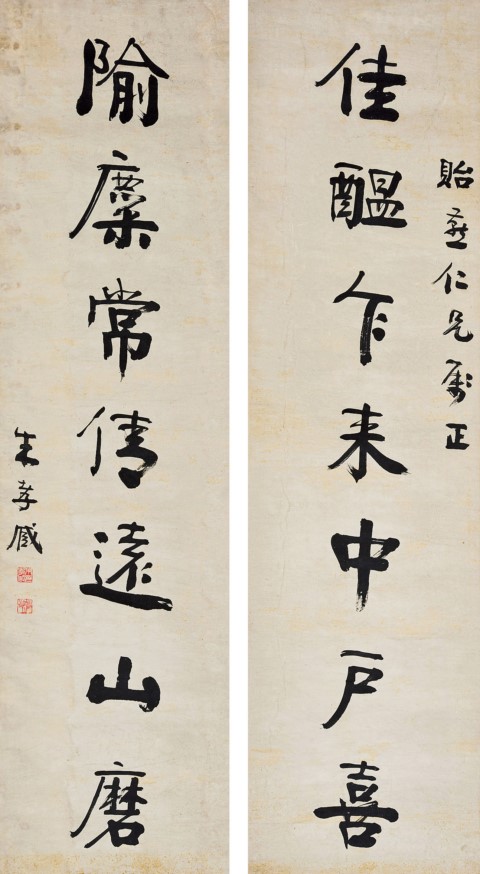 貽仁兄屬正
佳醞乍来中戶喜
隃麋常倩遠山磨
朱孝臧